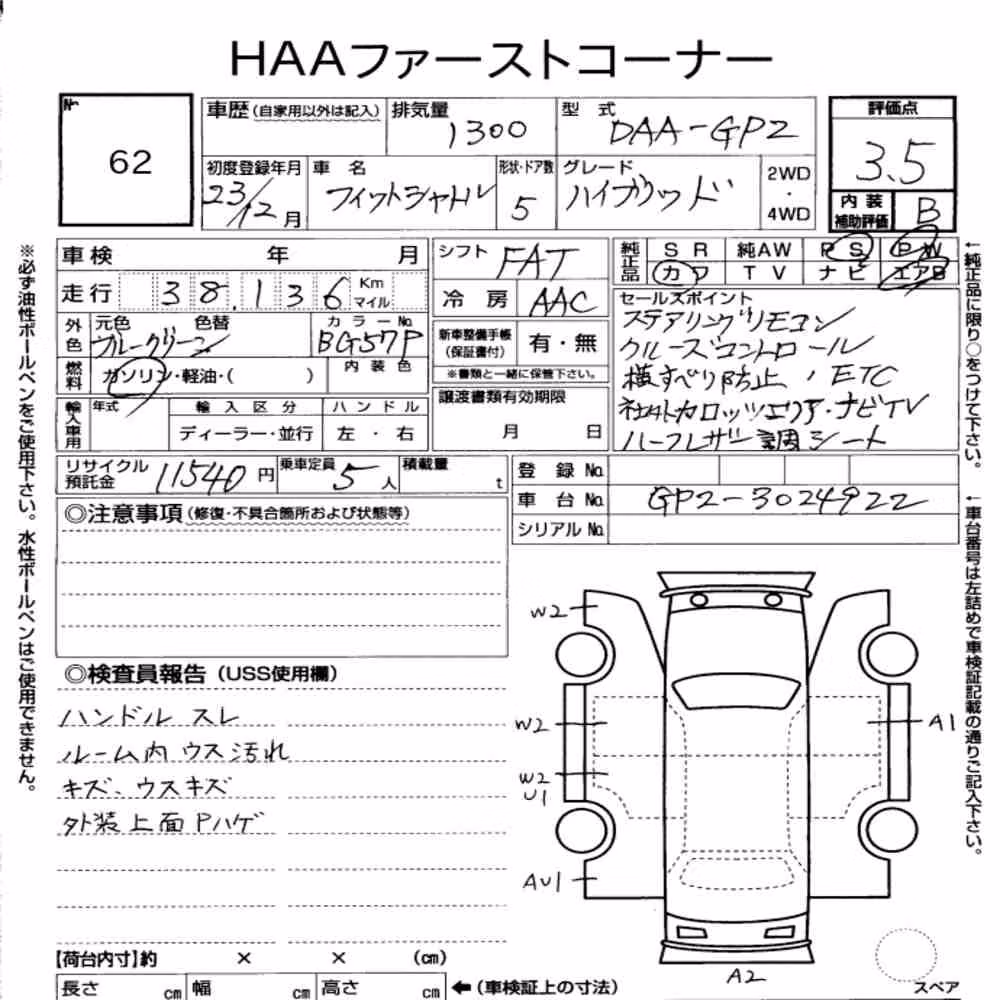 HAAファーストコーナー
№ 62
車歴(自家用以外は記入) 排気量 1300 型式 DAA-GP2 評価点 3.5
初度登録年月 23/12月 車名 フィットシャトル 形状・ドア数 5 グレード ハイブリッド 2WD・4WD
内装補助評価 B
車検 年 月 シフト FAT 純正品 SR 純AW PS PW
カワ TV ナビ エアB
走行 38,136 Kmマイル 冷房 AAC
外色 元色 色替 ブルーグリーン カラーNo. BG57P 内装色
新車整備手帳(保証書付) 有・無
※書類と一緒に保管下さい。
燃料 ガソリン・軽油・( )
セールスポイント
ステアリングリモコン
クルーズコントロール
横すべり防止、ETC
社外カロッツェリア・ナビTV
ハーフレザー調シート
輸入車用 年式 輸入区分 ハンドル
ディーラー・並行 左・右
譲渡書類有効期限
月 日
リサイクル預託金 11540円 乗車定員 5人 積載量 t
登録No.
車台No. GP2-3024922
シリアルNo.
◎注意事項(修復・不具合箇所および状態等)
◎検査員報告(USS使用欄)
ハンドル スレ
ルーム内 ウス汚れ
キズ、ウスキズ
外装上面Pハゲ
W2
W2
A1
W2
U1
AU1
A2
スペア
【荷台内寸】約 × × (cm)
長さ cm 幅 cm 高さ cm ←(車検証上の寸法)
※必ず油性ボールペンをご使用下さい。水性ボールペンはご使用できません。
←純正品に限り○をつけて下さい。
←車台番号は左詰めで車検証記載の通りご記入下さい。